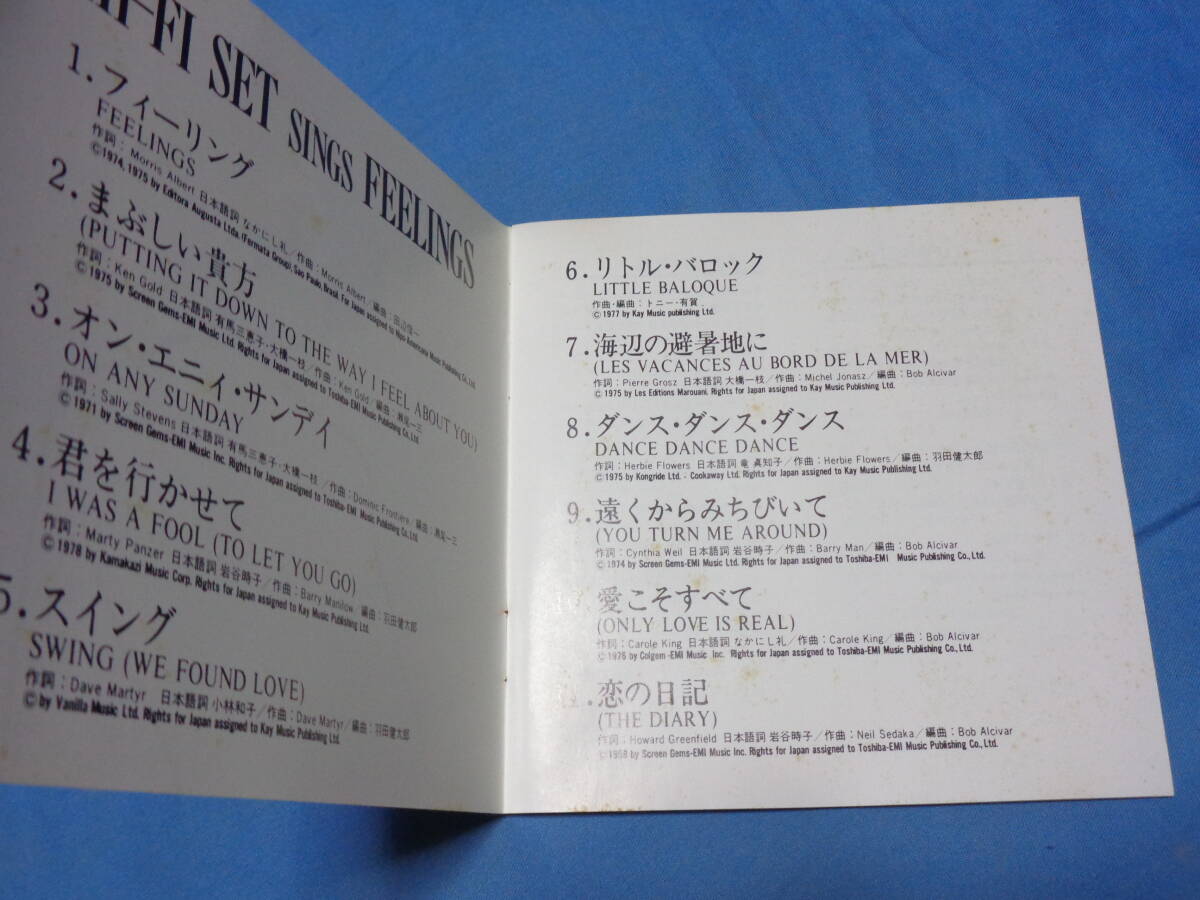 HI-FI SET SINGS FEELINGS
1.フィーリング
FEELINGS
作詞:Morris Albert 日本語詞 なかにし礼/作曲:Morris Albert/編曲:田辺信一
©1974, 1975 by Editora Augusta Ltda. (Fermata Group), Sao Paulo, Brasil. For Japan assigned to Nippo Americana Music Publishing Co., Ltd.
2.まぶしい貴方
(PUTTING IT DOWN TO THE WAY I FEEL ABOUT YOU)
作詞:Ken Gold 日本語詞 有馬三恵子・大橋一枝/作曲:Ken Gold/編曲:馬飼一三
©1975 by Screen Gems-EMI Music Ltd. Rights for Japan assigned to Toshiba-EMI Music Publishing Co., Ltd.
3.オン・エニィ・サンデイ
ON ANY SUNDAY
作詞:Sally Stevens 日本語詞 有馬三恵子・大橋一枝/作曲:Dominic Frontiere/編曲:
©1971 by Screen Gems-EMI Music Inc. Rights for Japan assigned to Toshiba-EMI Music Publishing Co., Ltd.
4.君を行かせて
I WAS A FOOL (TO LET YOU GO)
作詞:Marty Panzer 日本語詞 岩谷時子/作曲:Barry Manilow/編曲:羽田健太郎
©1978 by Kamakazi Music Corp. Rights for Japan assigned to Kay Music Publishing Ltd.
5.スイング
SWING (WE FOUND LOVE)
作詞:Dave Martyr 日本語詞 小林和子/作曲:Dave Martyr/編曲:羽田健太郎
©by Vanilla Music Ltd. Rights for Japan assigned to Kay Music Publishing Ltd.
6.リトル・バロック
LITTLE BALOQUE
作曲・編曲:トニー・有賀
©1977 by Kay Music publishing Ltd.
7.海辺の避暑地に
(LES VACANCES AU BORD DE LA MER)
作詞:Pierre Grosz 日本語詞 大橋一枝/作曲:Michel Jonasz/編曲:Bob Alcivar
©1975 by Les Editions Marouani. Rights for Japan assigned to Kay Music Publishing Ltd.
8.ダンス・ダンス・ダンス
DANCE DANCE DANCE
作詞:Herbie Flowers 日本語詞 竜 真知子/作曲:Herbie Flowers/編曲:羽田健太郎
©1975 by Kongride Ltd. - Cookaway Ltd. Rights for Japan assigned to Kay Music Publishing Ltd.
9.遠くからみちびいて
(YOU TURN ME AROUND)
作詞:Cynthia Weil 日本語詞 岩谷時子/作曲:Barry Man/編曲:Bob Alcivar
©1974 by Screen Gems-EMI Music Ltd. Rights for Japan assigned to Toshiba-EMI Music Publishing Co., Ltd.
愛こそすべて
(ONLY LOVE IS REAL)
作詞:Carole King 日本語詞 なかにし礼/作曲:Carole King/編曲:Bob Alcivar
©1976 by Colgem-EMI Music Inc. Rights for Japan assigned to Toshiba-EMI Music Publishing Co., Ltd.
恋の日記
(THE DIARY)
作詞:Howard Greenfield 日本語詞 岩谷時子/作曲:Neil Sedaka/編曲:Bob Alcivar
©1958 by Screen Gems-EMI Music Inc. Rights for Japan assigned to Toshiba-EMI Music Publishing Co., Ltd.